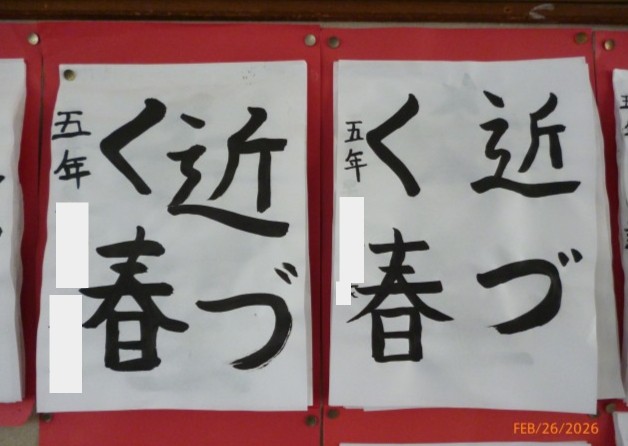 近づ
く春
五年
近づ
く春
五年
FEB/26/2026